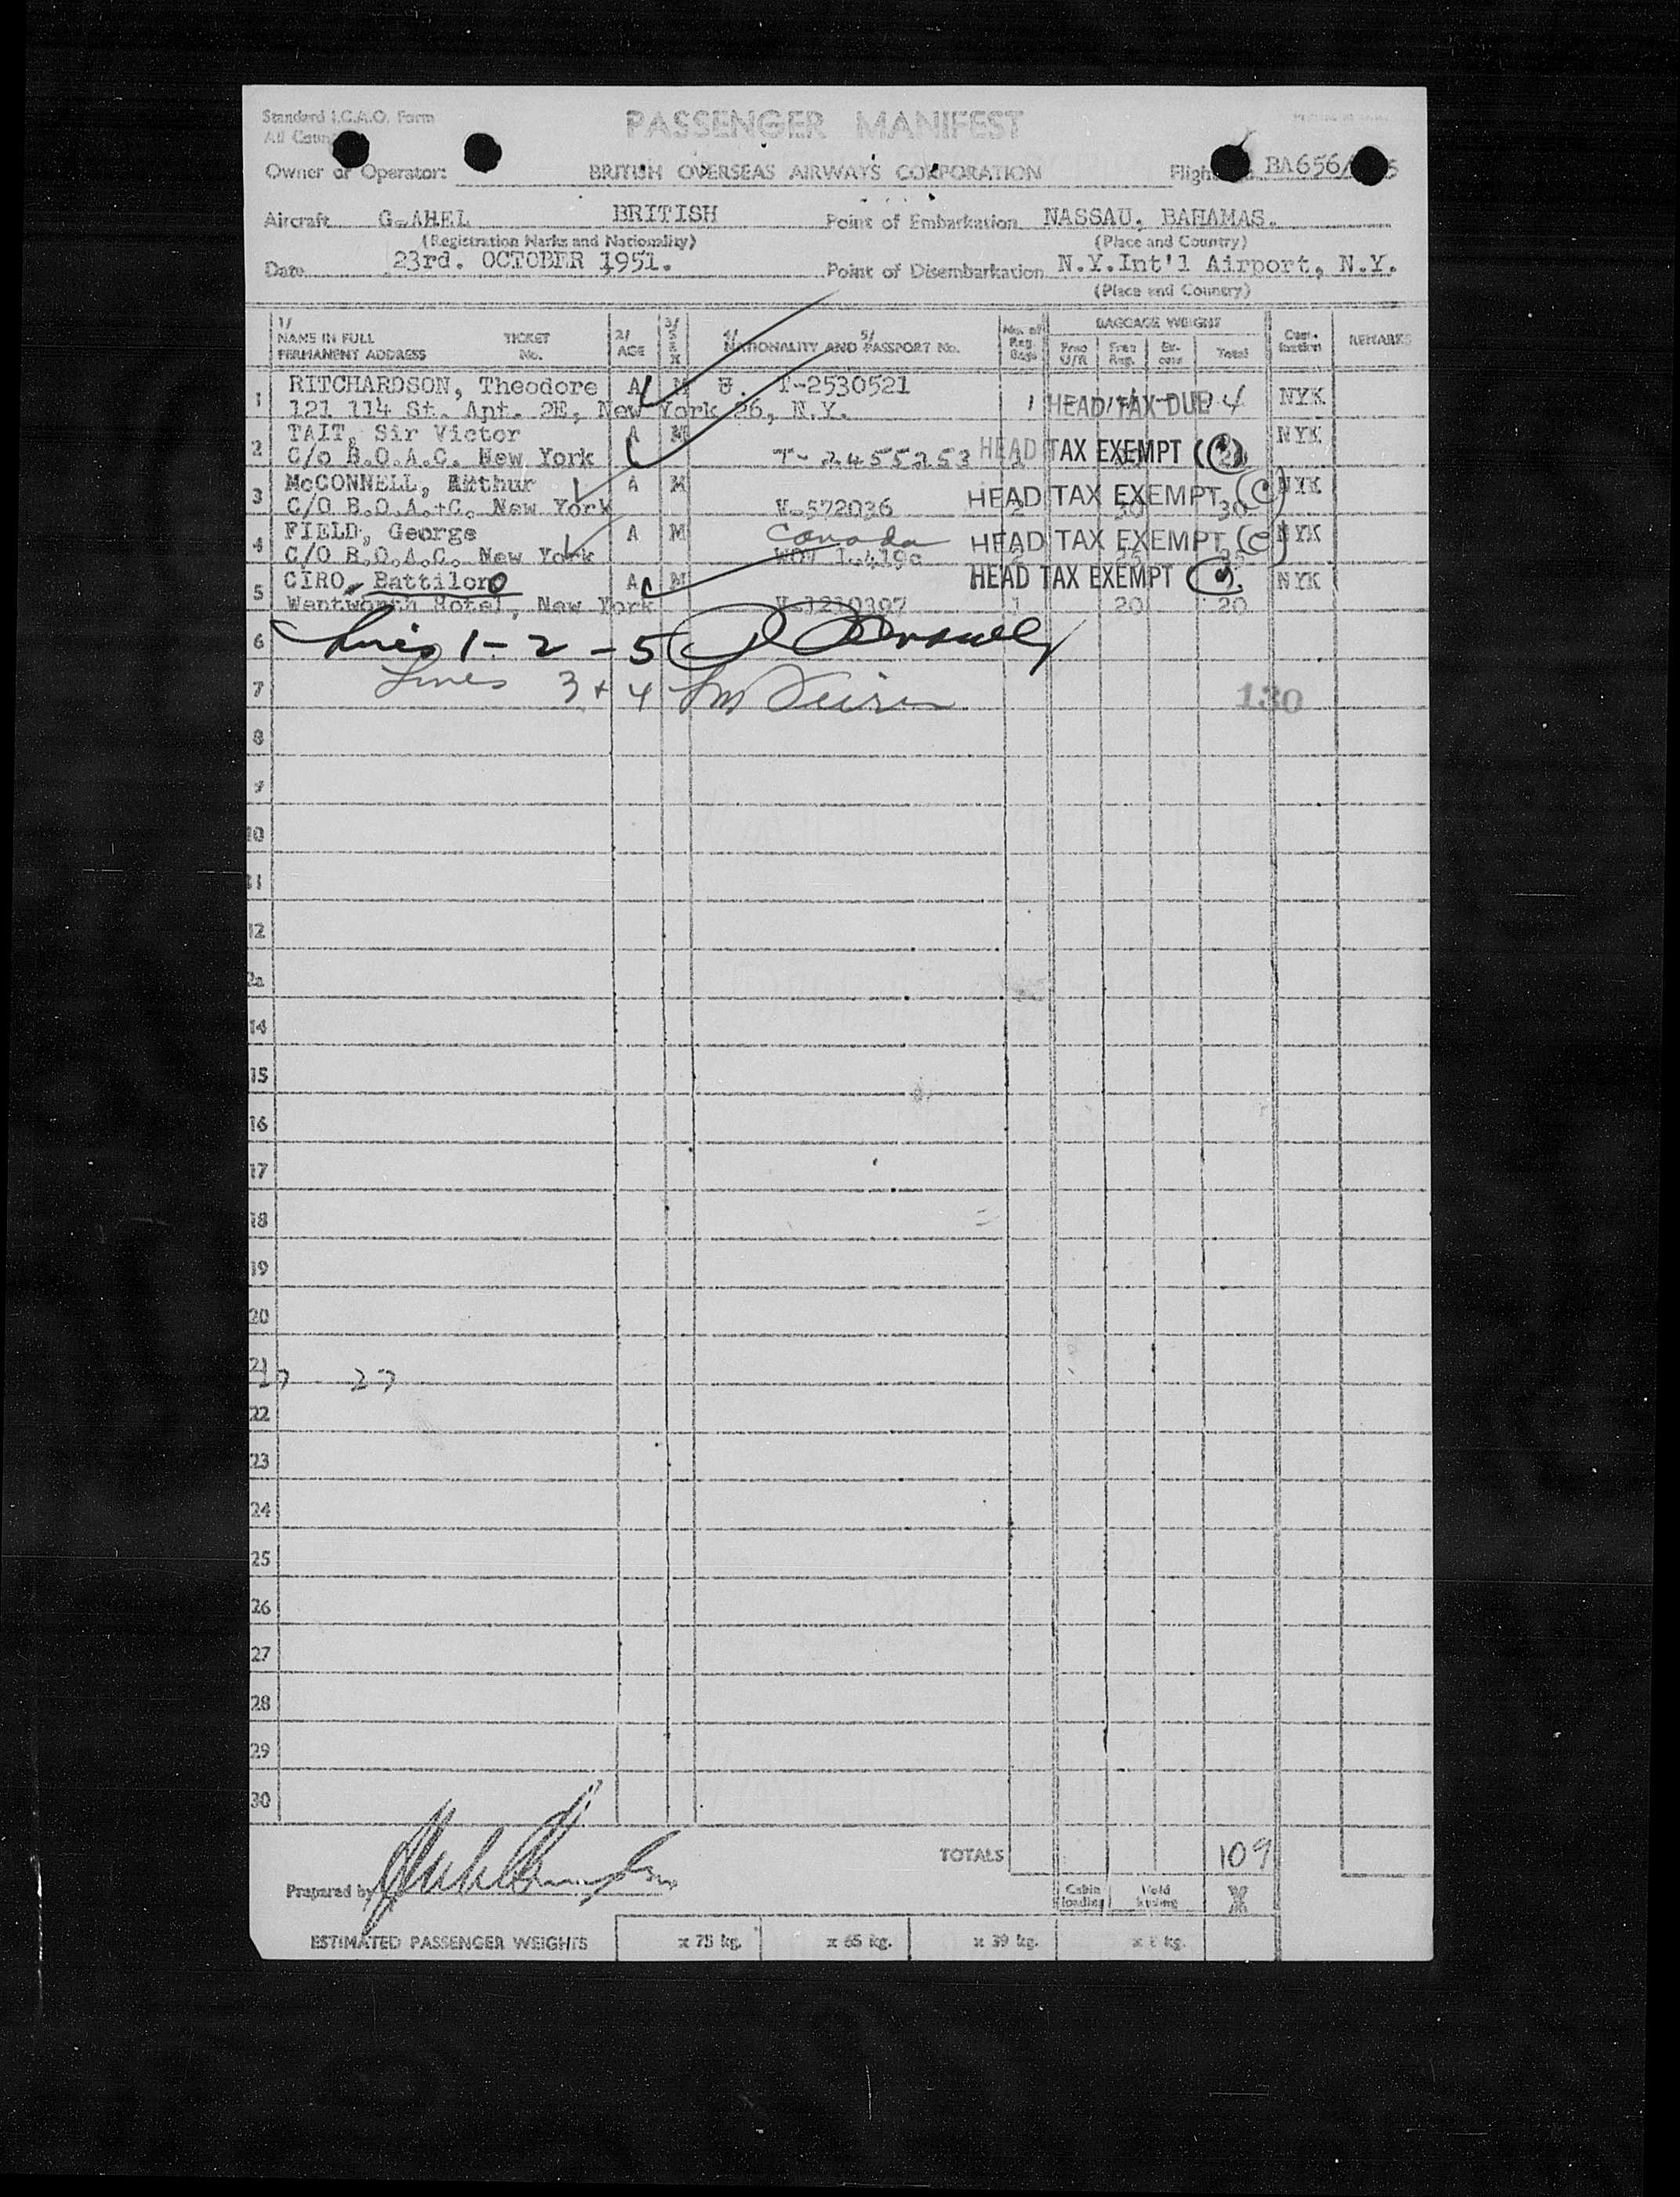 Standard I.C.A.O. Form
PASSENGER MANIFEST
All
Owner or Operator: BRITISH OVERSEAS AIRWAYS CORPORATION BA656/
Aircraft G-AHEL BRITISH Point of Embarkation NASSAU, BAHAMAS.
(Registration Marks and Nationality) (Place and Country)
Date 23rd. OCTOBER 1951. Point of Disembarkation N.Y.Int'l Airport, N.Y.
(Place and Country)
1/ NAME IN FULL PERMANENT ADDRESS TICKET No. 2/ AGE 3/ SEX 4/ 5/ NATIONALITY AND PASSPORT No. No. of Reg. Bags BAGGAGE WEIGHT Free U/R Free Reg. Ex-cess Total Dest-ination REMARKS
1 RITCHARDSON, Theodore A M T-2530521 1 HEAD TAX DUE 4 NYK
121 114 St. Apt. 2E, New York 26, N.Y.
2 TAIT, Sir Victor A M NYK
C/o B.O.A.C. New York T-2455253 HEAD TAX EXEMPT (C)
3 McCONNELL, Arthur A M HEAD TAX EXEMPT (C) NYK
C/O B.O.A.C. New York V-572036 2 30 30
4 FIELD, George A M Canada HEAD TAX EXEMPT (C) NYK
C/O B.O.A.C. New York
5 CIRO, Battiloro A M HEAD TAX EXEMPT NYK
Wentworth Hotel, New York V-1210397 1 20 20
6 Lines 1-2-5
7 Lines 3+4 130
8
9
10
11
12
14
15
16
17
18
19
20
21
27 27
22
23
24
25
26
27
28
29
30
TOTALS 109
Prepared by
Cabin loading Hold loading X
ESTIMATED PASSENGER WEIGHTS x 75 kg. x 65 kg. x 39 kg. x 8 kg.